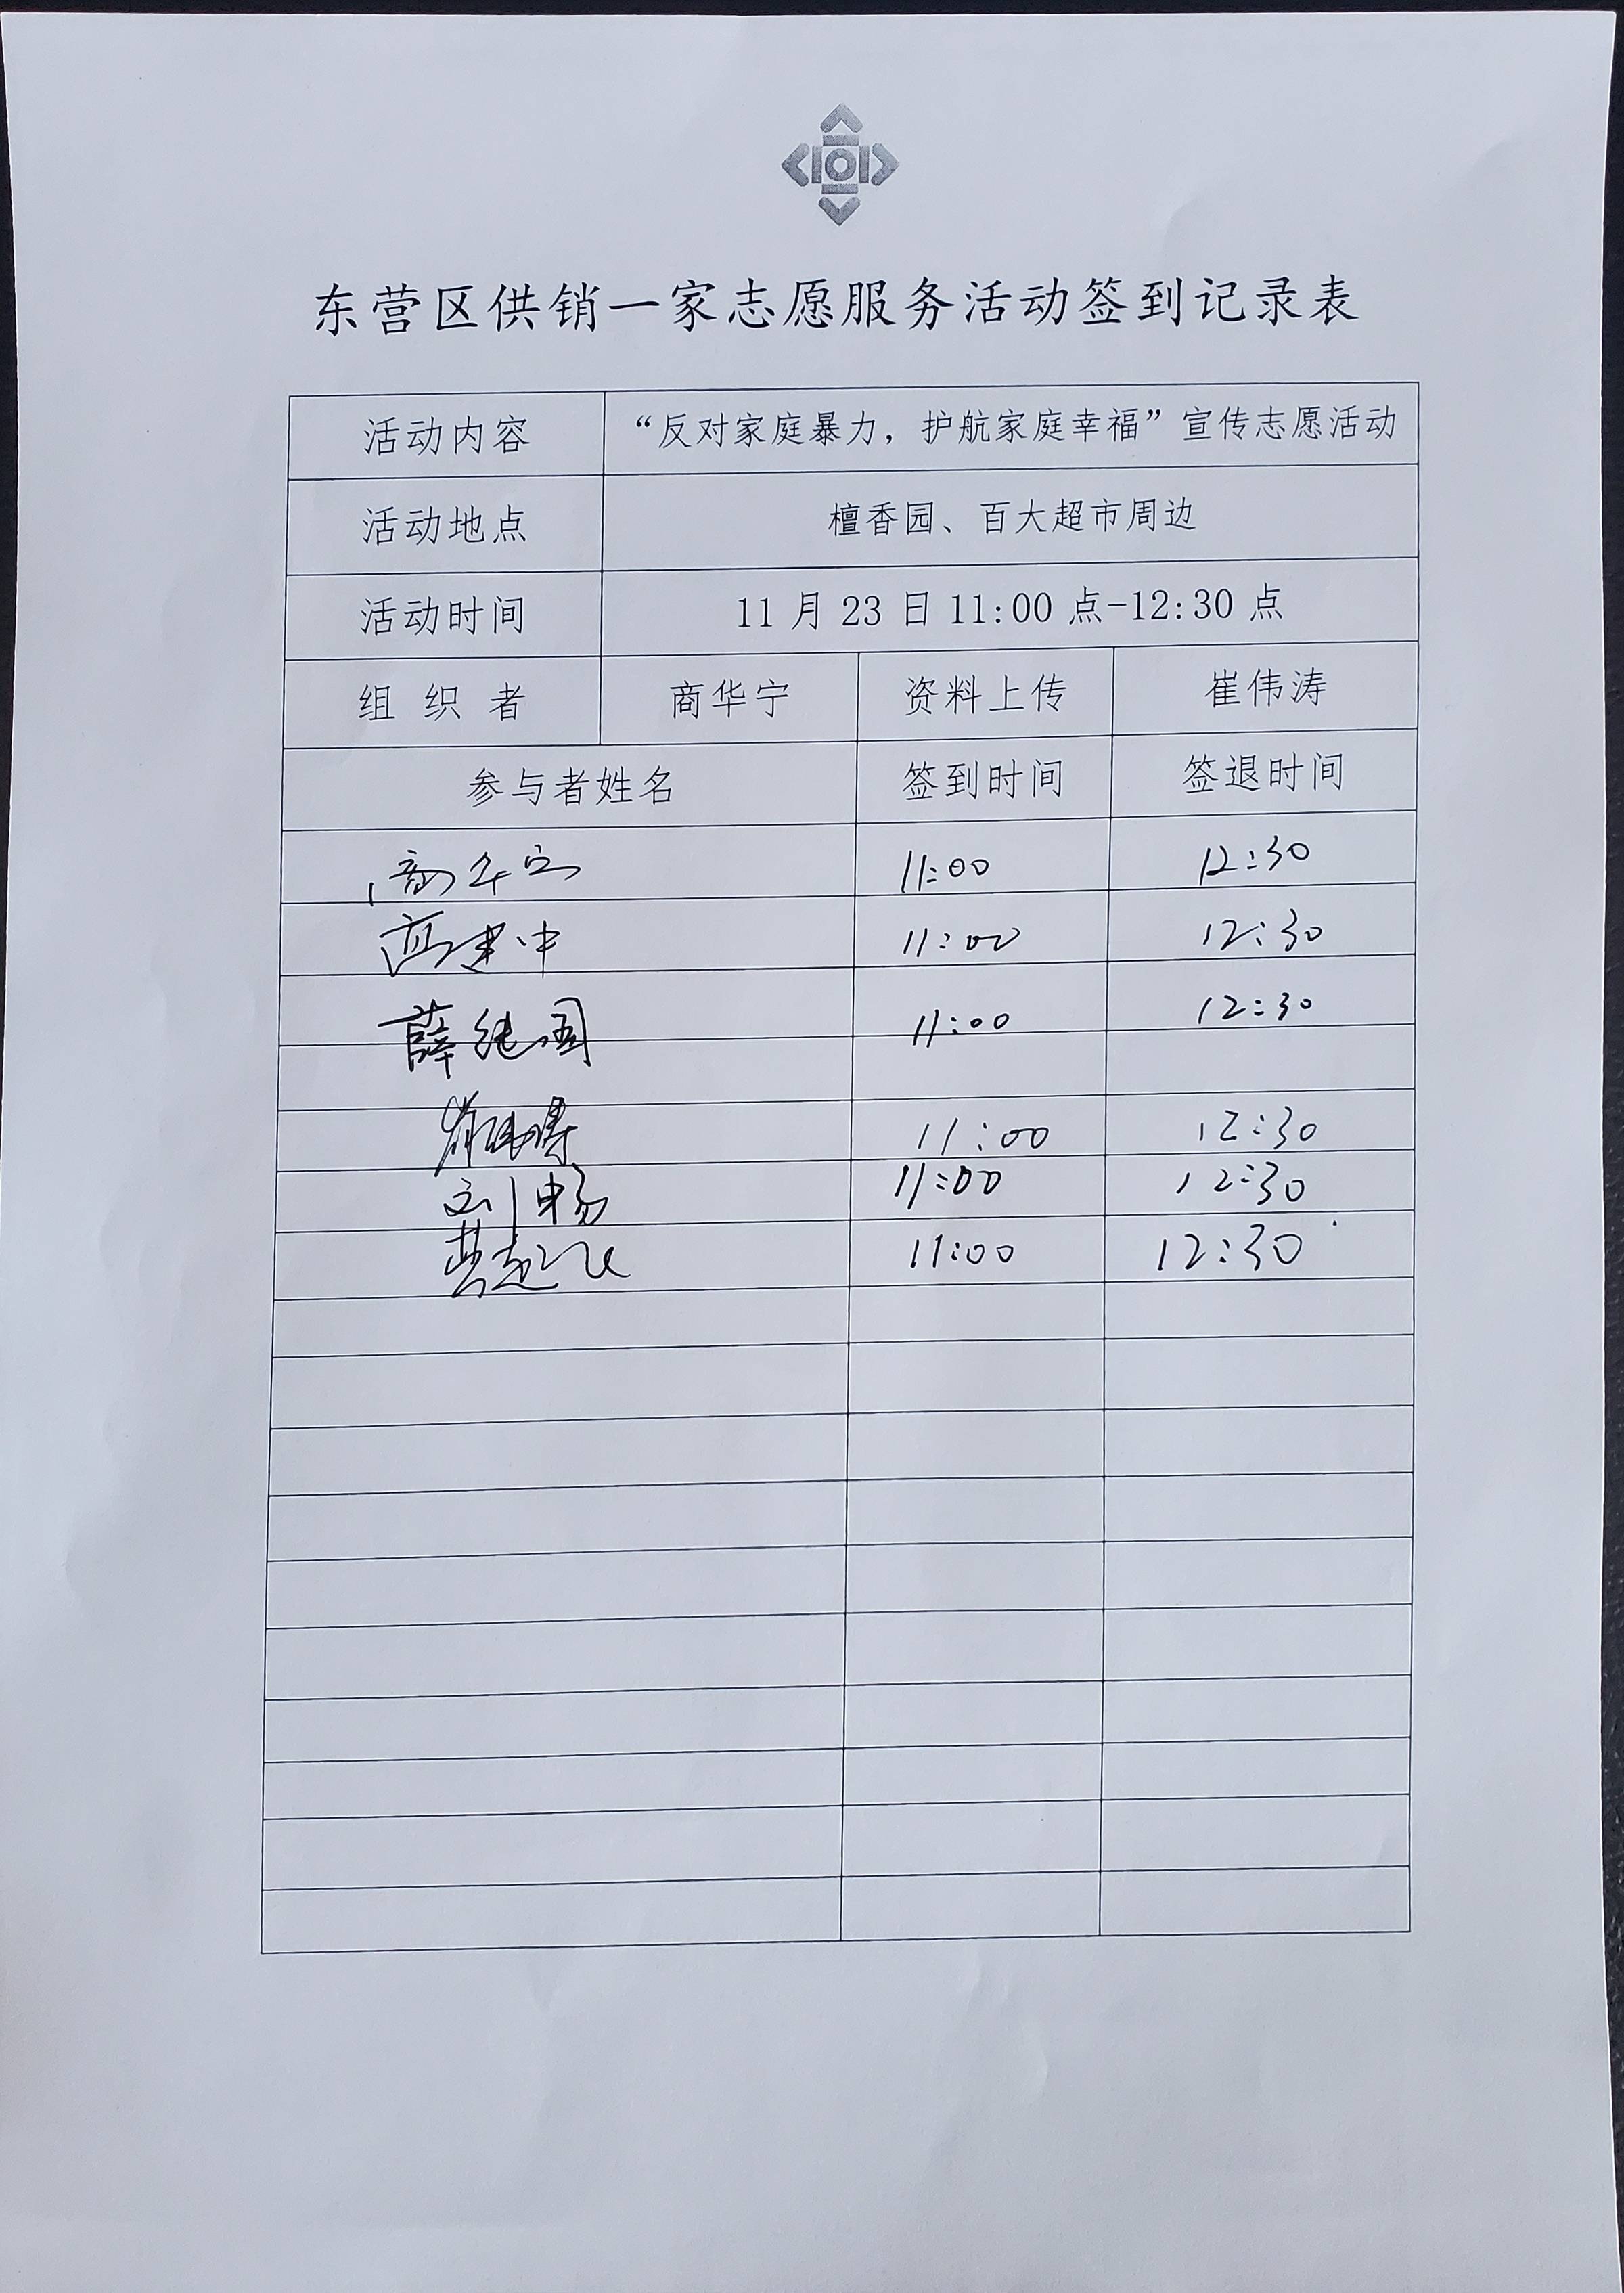 东营区供销一家志愿服务活动签到记录表
活动内容 “反对家庭暴力，护航家庭幸福”宣传志愿活动
活动地点 檀香园、百大超市周边
活动时间 11月23日11:00点-12:30点
组织者 商华宁 资料上传 崔伟涛
参与者姓名 签到时间 签退时间
商华宁 11:00 12:30
高建中 11:00 12:30
薛继国 11:00 12:30
11:00 12:30
刘畅 11:00 12:30
11:00 12:30